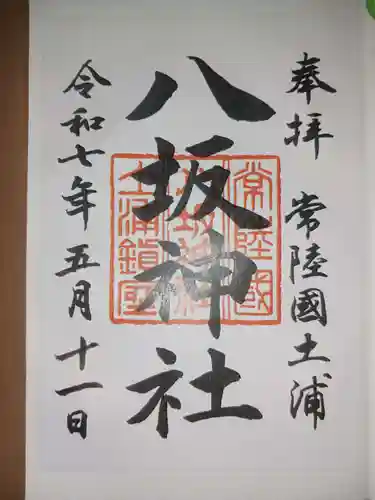 奉拝 常陸國土浦
八坂神社
令和七年五月十一日
常陸國
土浦鎮座